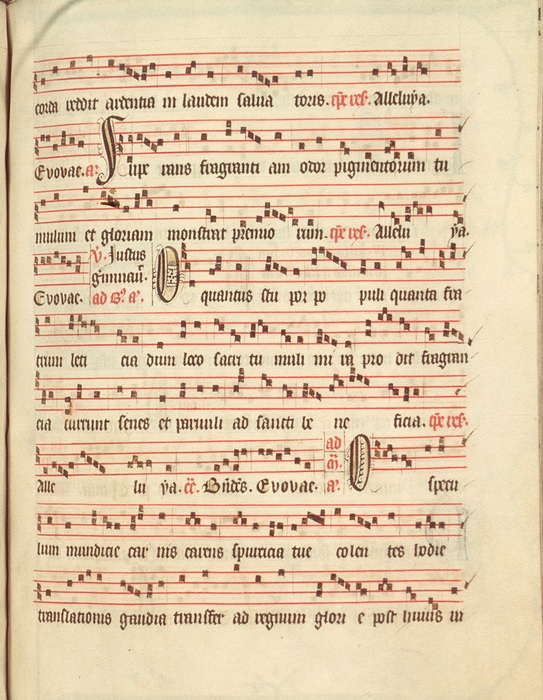 corda reddit ardentia in laudem salua toris. Alleluya.
Evovae. a. Supe rans fragranti am odor pigmentorum tu
mulum et gloriam monstrat premio rum. Allelu ya.
℣. Justus
Evovae. ad a. O quantus po puli quanta fra
trum leti cia dum loco sacri tu muli mi ra pro dit fragran
cia currunt senes et paruuli ad sancti be ne ficia.
ad
Alle lu ya. Evovae. a. O specu
lum mundicie car nis carens spurcicia tue colen tes hodie
translationis gaudia transfer ad regnum glori e post huius in